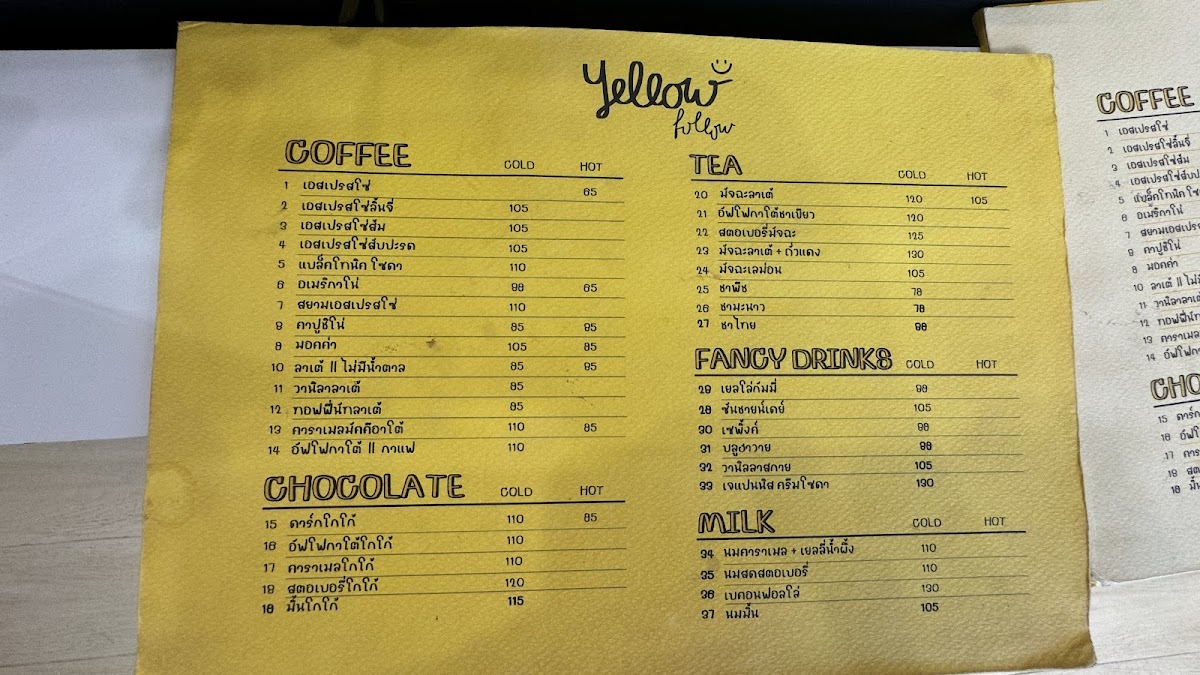 Yellow
follow
COFFEE COLD HOT
1 เอสเปรสโซ่ 85
2 เอสเปรสโซ่ลิ้นจี่ 105
3 เอสเปรสโซ่ส้ม 105
4 เอสเปรสโซ่สับปะรด 105
5 แบล็คโทนิค โซดา 110
6 อเมริกาโน่ 98 85
7 สยามเอสเปรสโซ่ 110
8 คาปูชิโน่ 85 95
9 มอคค่า 105 85
10 ลาเต้ || ไม่มีน้ำตาล 85 95
11 วานิลาลาเต้ 85
12 ทอฟฟี่นัทลาเต้ 85
13 คาราเมลมัคคิอาโต้ 110 85
14 อัฟโฟกาโต้ || กาแฟ 110
CHOCOLATE COLD HOT
15 ดาร์กโกโก้ 110 85
16 อัฟโฟกาโต้โกโก้ 110
17 คาราเมลโกโก้ 110
18 สตอเบอรี่โกโก้ 120
19 มิ้นโกโก้ 115
TEA COLD HOT
20 มัจฉะลาเต้ 120 105
21 อัฟโฟกาโต้ชาเขียว 120
22 สตอเบอรี่มัจฉะ 125
23 มัจฉะลาเต้ + ถั่วแดง 130
24 มัจฉะเลม่อน 105
25 ชาพีช 78
26 ชามะนาว 78
27 ชาไทย 98
FANCY DRINKS COLD HOT
28 เยลโล่กัมมี่ 98
29 ซันชายน์เดย์ 105
30 เซพิ้งค์ 98
31 บลูฮาวาย 98
32 วานิลลาสกาย 105
33 เจแปนนิส ครีมโซดา 130
MILK COLD HOT
34 นมคาราเมล + เยลลี่น้ำผึ้ง 110
35 นมสดสตอเบอรี่ 110
36 เบคอนฟอลโล่ 130
37 นมมิ้น 105
COFFEE
1 เอสเปรสโซ่
2 เอสเปรสโซ่ลิ้นจี่
3 เอสเปรสโซ่ส้ม
4 เอสเปรสโซ่สับปะ
5 แบล็คโทนิค โซ
6 อเมริกาโน่
7 สยามเอสเปรส
8 คาปูชิโน่
9 มอคค่า
10 ลาเต้ || ไม่มี
11 วานิลาลาเต้
12 ทอฟฟี่นัท
13 คาราเมล
14 อัฟโฟกา
CHO
15 ดาร์ก
16 อัฟโ
17 คาร
18 สต
19 มิ้น